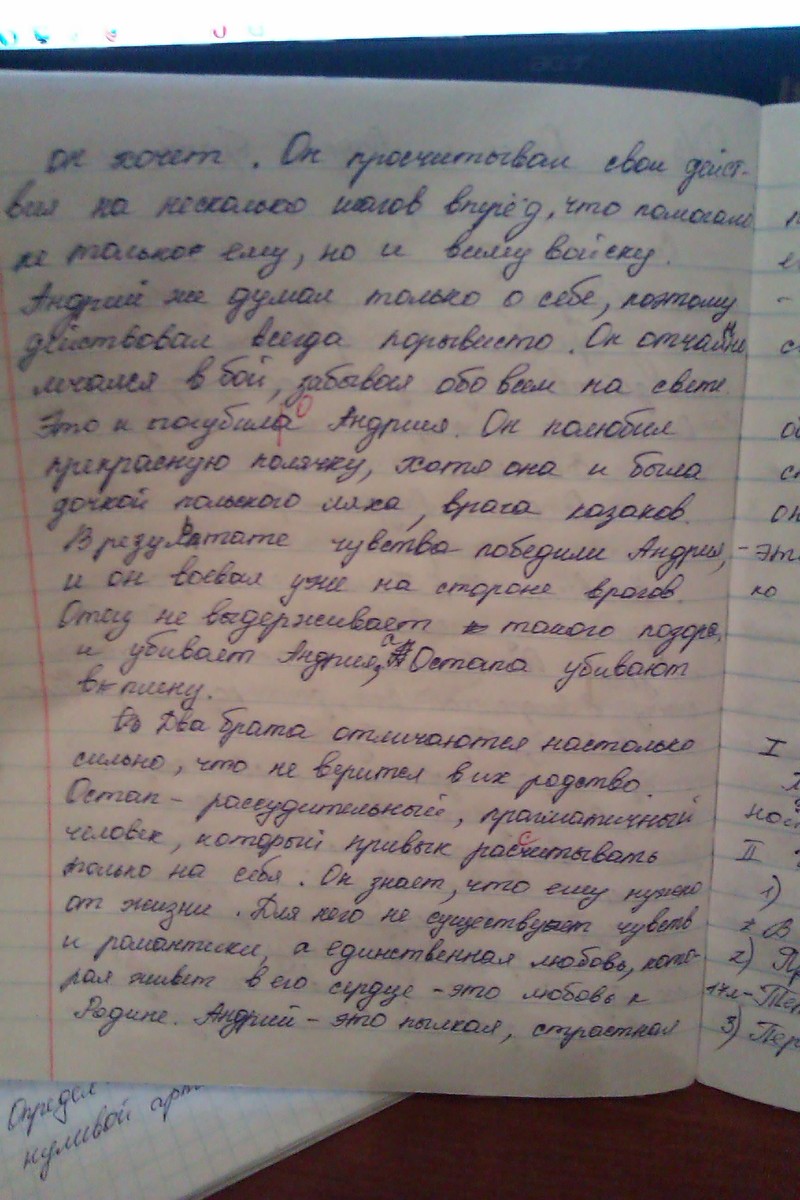 он хочет. Он просчитывал свои дейст-
вия на несколько шагов вперёд, что помогало
не только ему, но и всему войску.
Андрий же думал только о себе, поэтому
действовал всегда порывисто. Он отчаянно
мчался в бой, забывая обо всем на свете.
Это и погубило Андрия. Он полюбил
прекрасную полячку, хотя она и была
дочкой польского ляха, врага козаков.
В результате чувства победили Андрия,
и он воевал уже на стороне врагов.
Отец не выдерживает такого позора,
и убивает Андрия, а Остапа убивают
в плену.
Два брата отличаются настолько
сильно, что не верится в их родство.
Остап - рассудительный, прагматичный
человек, который привык расчитывать
только на себя. Он знает, что ему нужно
от жизни. Для него не существует чувств
и романтики, а единственная любовь, кото-
рая живет в его сердце - это любовь к
Родине. Андрий - это пылкая, страстная
- это
но
I
II
1)
2)
3) Пер
Определ.
нулевой